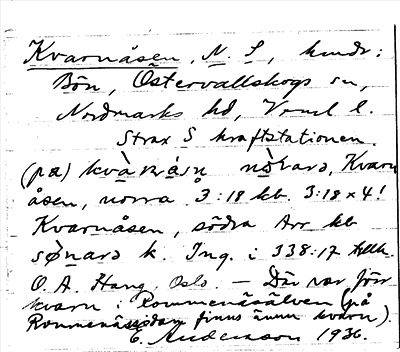 Kvarnåsen, N. S, hmdr:
Bön, Östervallskogs sn,
Nordmarks hd, Vrml l.
Strax S kraftstationen.
(på) kvànåsn nòrarə, Kvarn
åsen, norra 3:18 kb. 3:18 x 4!
Kvarnåsen, södra Arr kb
sønarə k. Ing. i 338:17 tillh.
O. A. Haug, Oslo. — Där var förr
kvarn i Rommenäsälven (på
Rommenässidan finns ännu kvarn).
E. Andersson 1936.